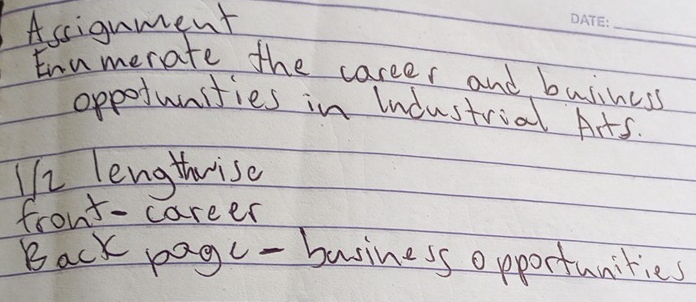 DATE:
Assignment
Enumerate the career and business
oppotunities in Industrial Arts.
1/2 lengthwise
front - career
Back page - business opportunities